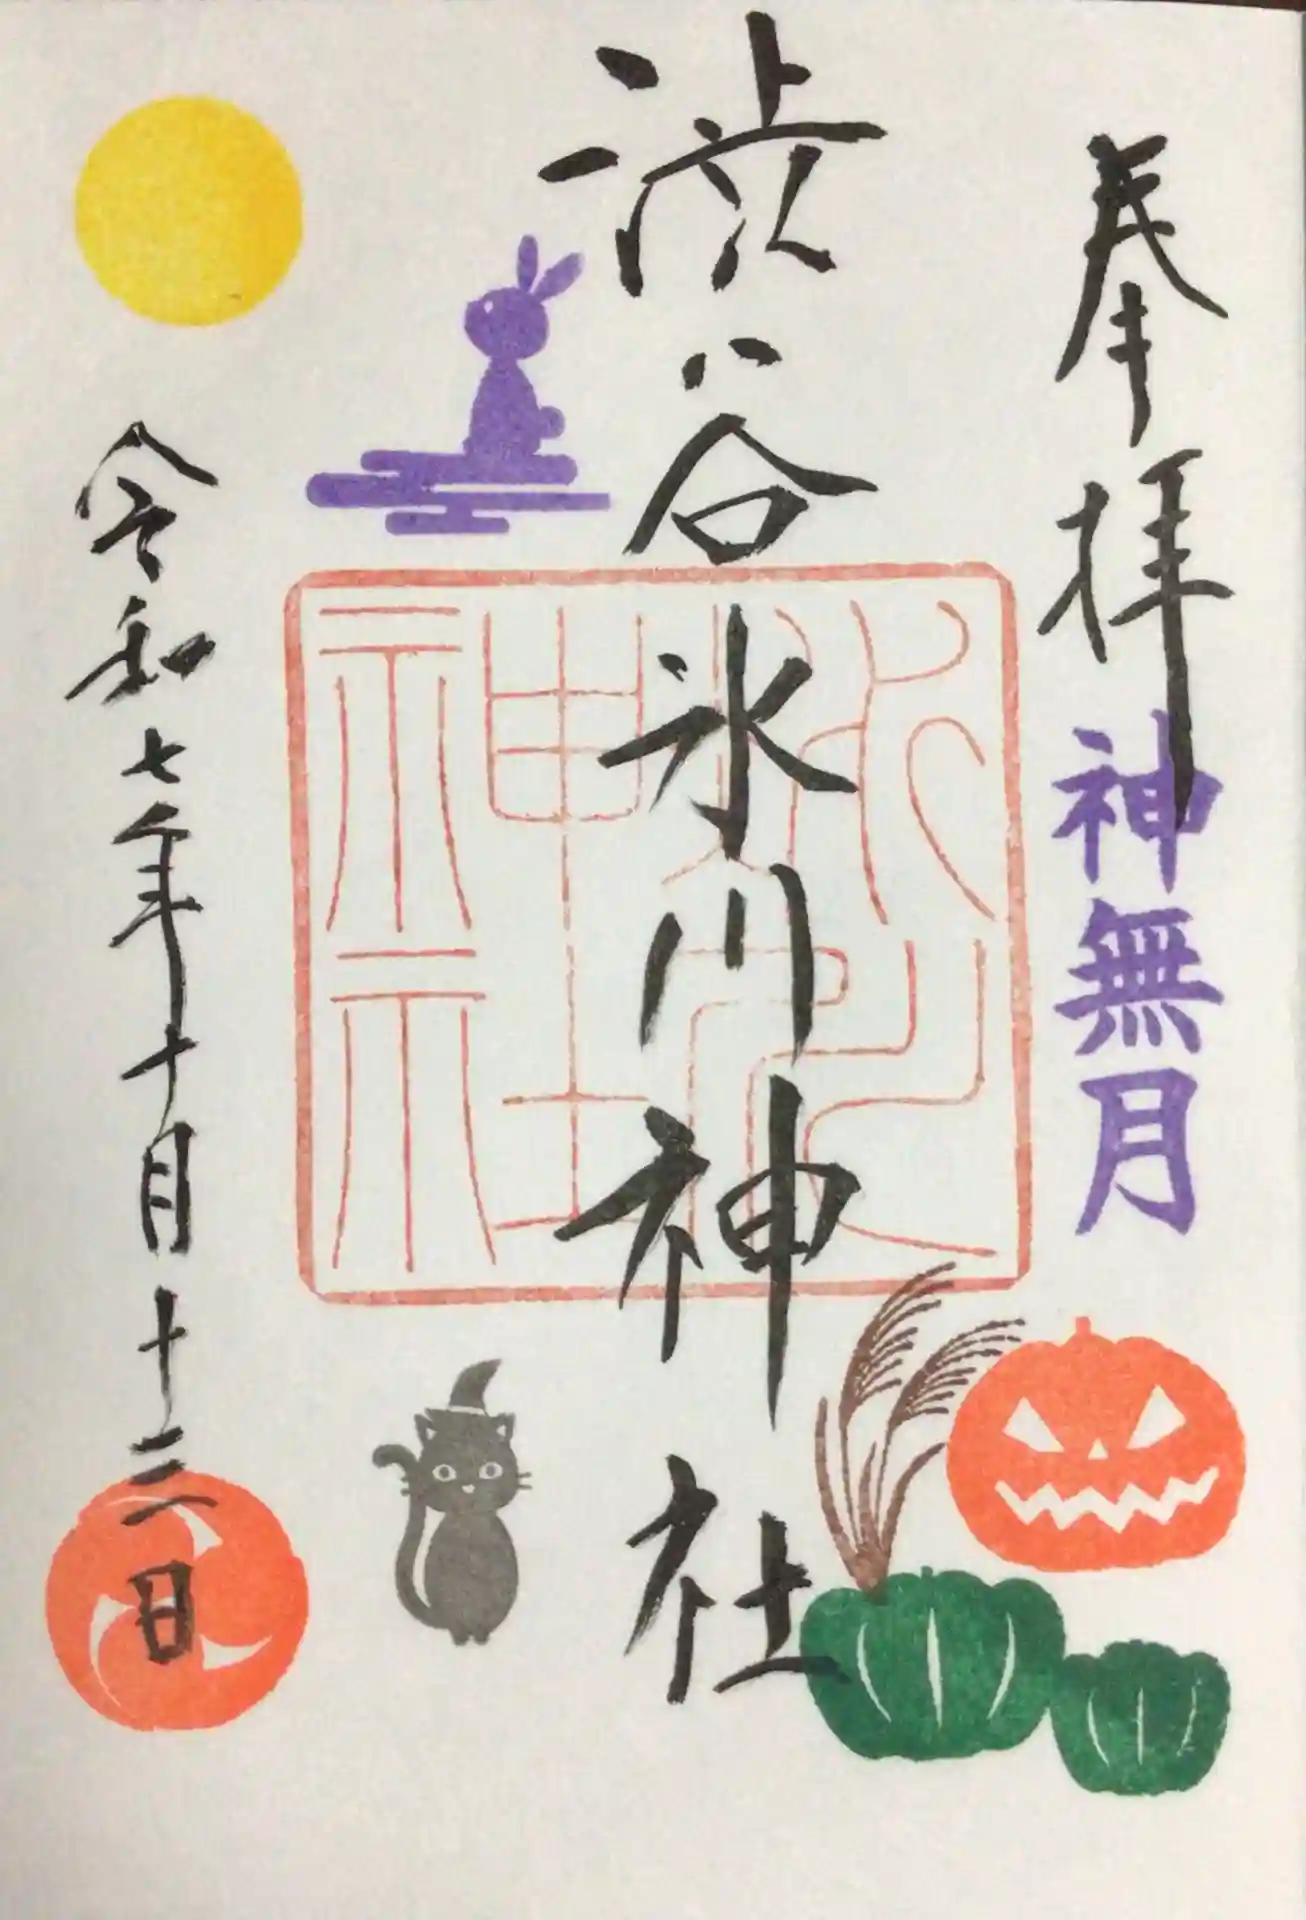 奉拝
神無月
渋谷氷川神社
氷川
神社
令和七年十月十三日